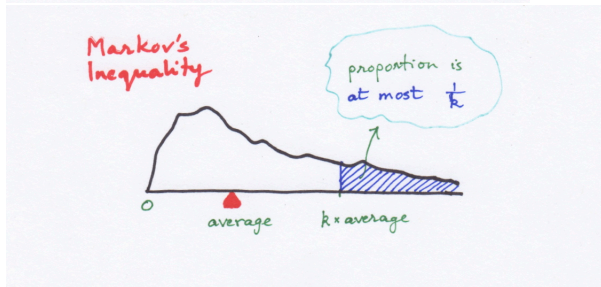 Markov's
Inequality
proportion is
at most 1/k
0
average
k × average